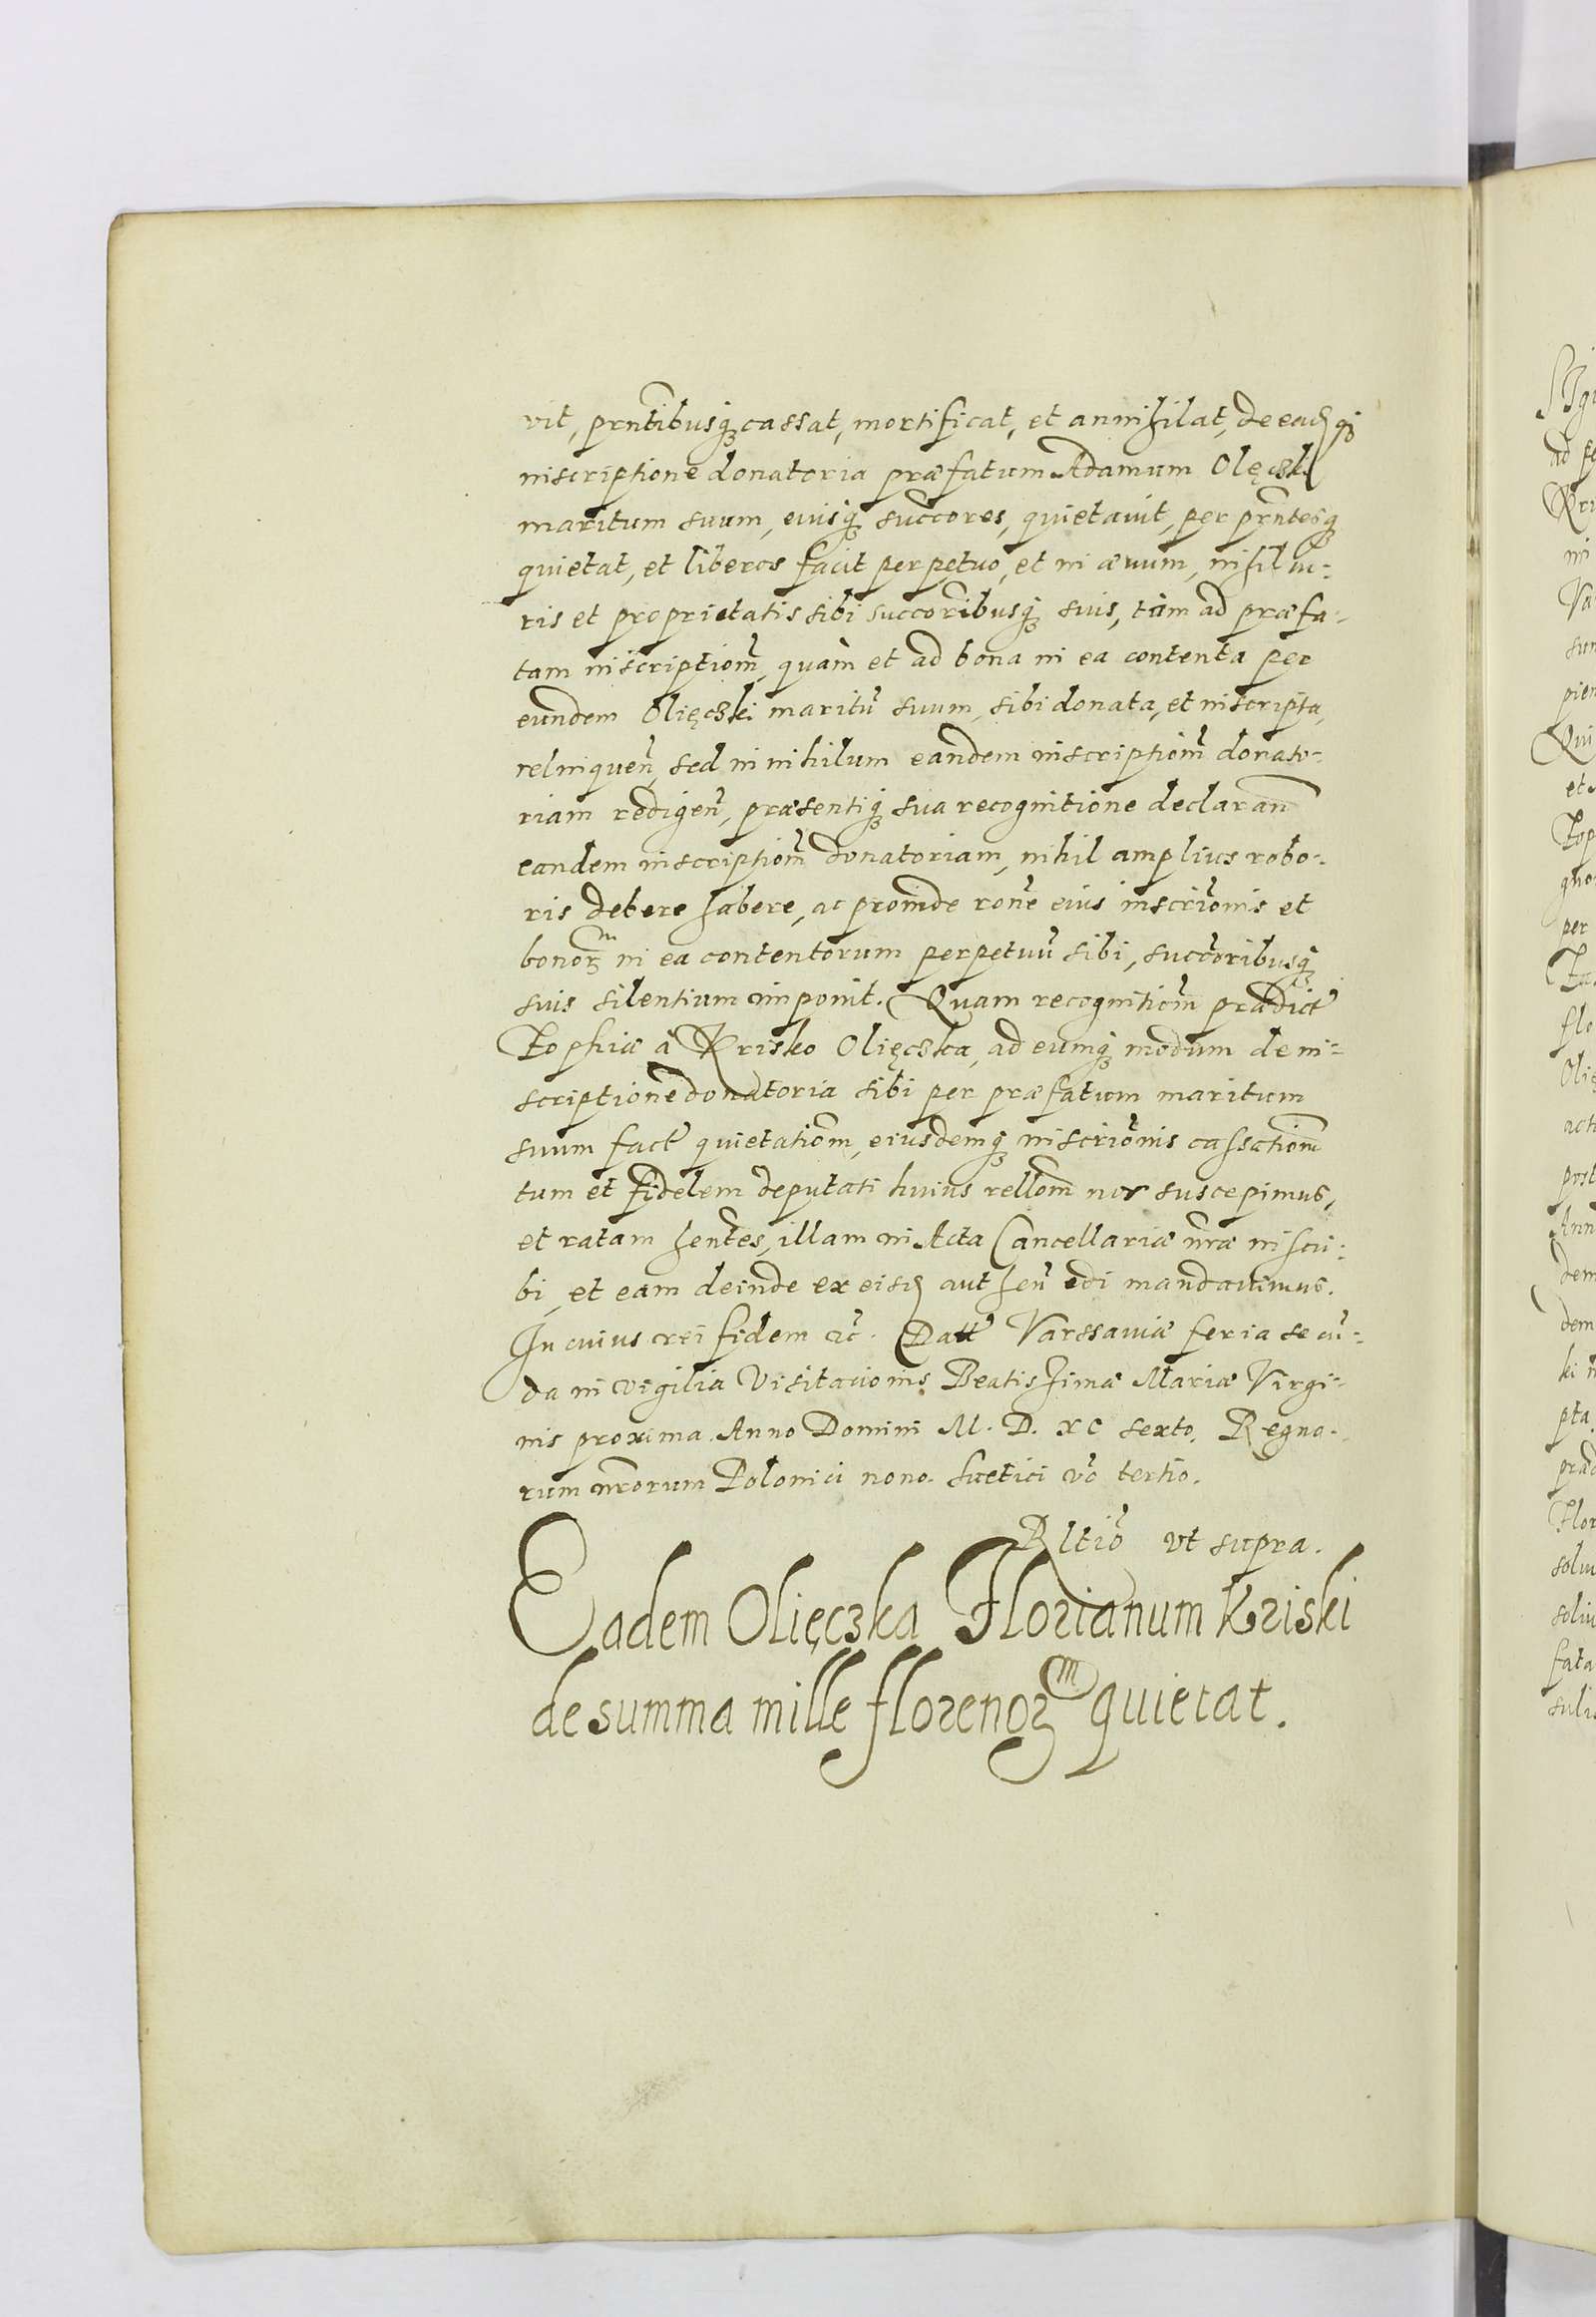 vit, prntibusq₃ cassat, mortificat, et annihilat, de eadq₃
inscriptione donatoria præfatum Adamum Olęczki
maritum suum, eiusq₃ succores, quietavit, per prntesq₃
quietat, et liberos facit perpetuo, et in æuum, nihil iu-
ris et proprietatis sibi succoribusq₃ suis, tam ad præfa-
tam inscriptiom̃, quàm et ad bona in ea contenta per
eundem Olięczki maritũ suum, sibi donata, et inscripta,
relinqueñ, sed in nihilum eandem inscriptiom̃ donato-
riam redigeñ, præsentiq₃ sua recognitione declarañ
eandem inscriptiom̃ donatoriam, nihil amplius robo-
ris debere habere, ac proinde rone eius inscrionis et
bonorꝫm in ea contentorum perpetuũ sibi, succoribusq₃
suis silentium imponit. Quam recognitiom̃ prædict
Zophiæ à Krisko Olięczka, ad eumq₃ modum de in-
scriptione donatoria sibi per præfatum maritum
suum fact quietatiom̃, eiusdemq₃ inscrionis cassatiom̃
tum et fidelem deputati huius rellom̃ nos suscepimus,
et ratam hentes, illam in Acta Cancellariæ nræ inscri-
bi, et eam deinde ex eisd autheñ edi mandauimus.
In cuius rei fidem etc̃. Datt Varssauiæ feria secũ-
da in vigilia Visitacionis Beatissimæ Mariæ Virgi-
nis proxima Anno Domini M. D. XC sexto. Regno-
rum nrorum Polonici nono. Suetici vo tertio.
Rltio ut supra.
Eadem Olięczka Florianum Kriski
de summa mille florenorꝫm quietat.